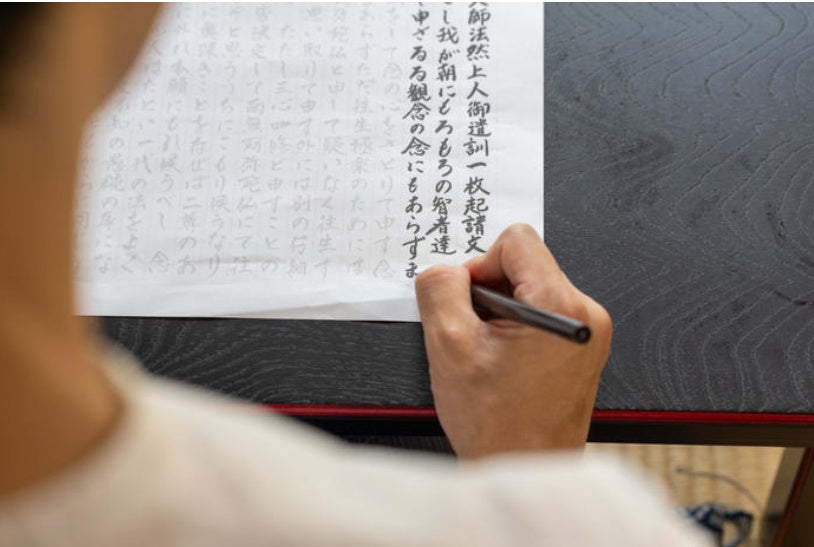 師法然上人御遺訓一枚起請文
し我が朝にもろもろの智者達
申さるる観念の念にもあらずま
して念の心をさとりて申す念
あらずただ往生極楽のためには
弥陀仏と申して疑いなく往生す
思い取りて申す外には別の仔細
ただし三心四修と申すことの
皆決定して南無阿弥陀仏にて往
と思ううちにこもり候うなり
に奥深きことを存ぜば二尊のあ
外れ本願にもれ候うべし 念
人はたとい一代の法をよく
不知の愚鈍の身にな